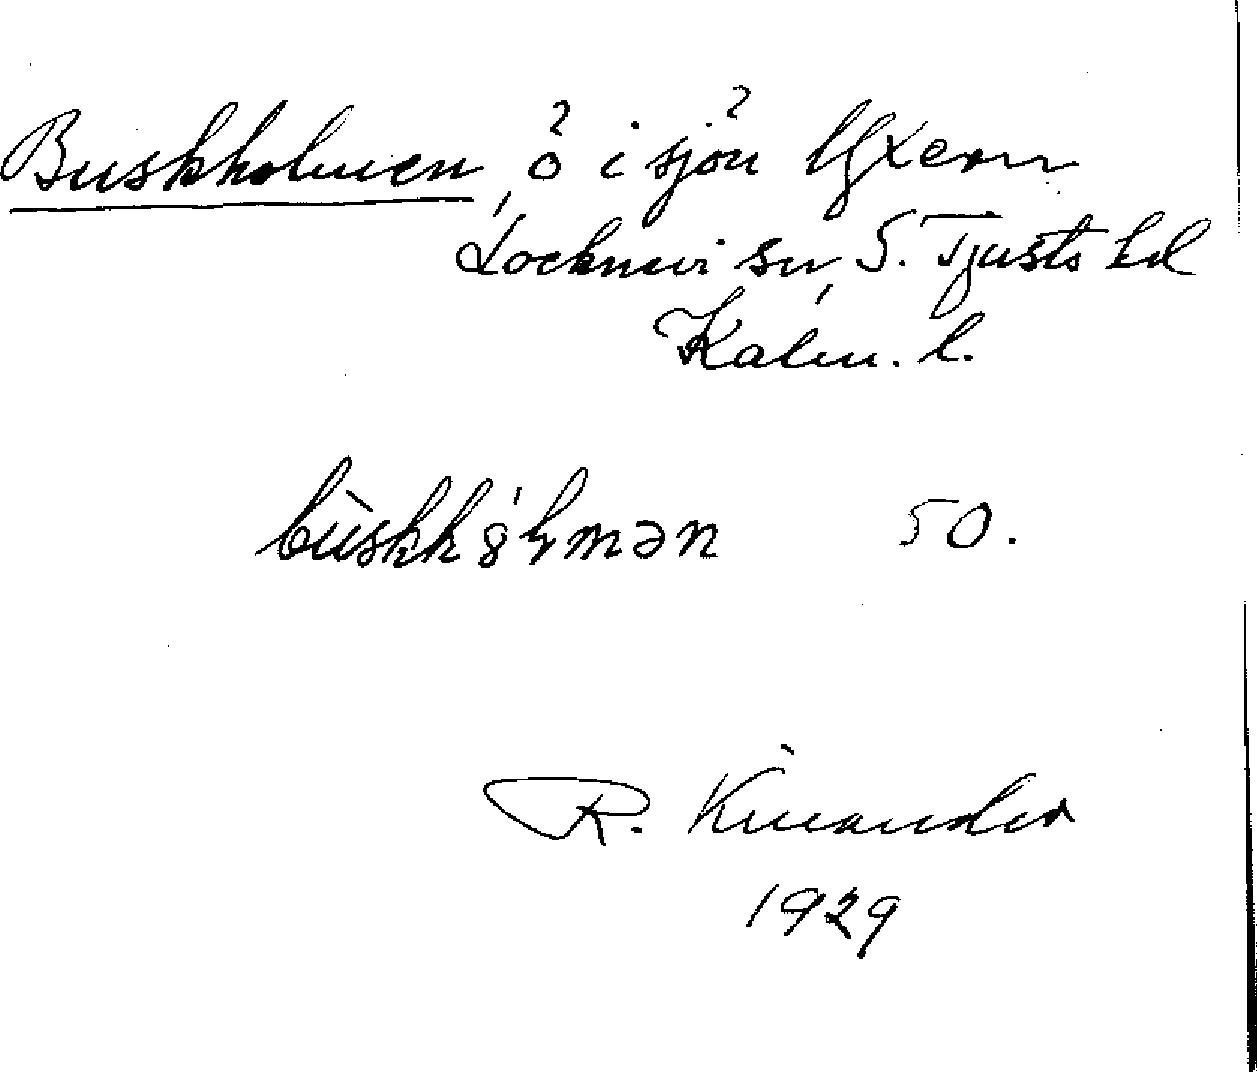 Buskholmen, ö i sjön Yxern
Locknevi sn, S. Tjusts hd
Kalm. l.
bùskkólmən 50.
R. Kinander
1929